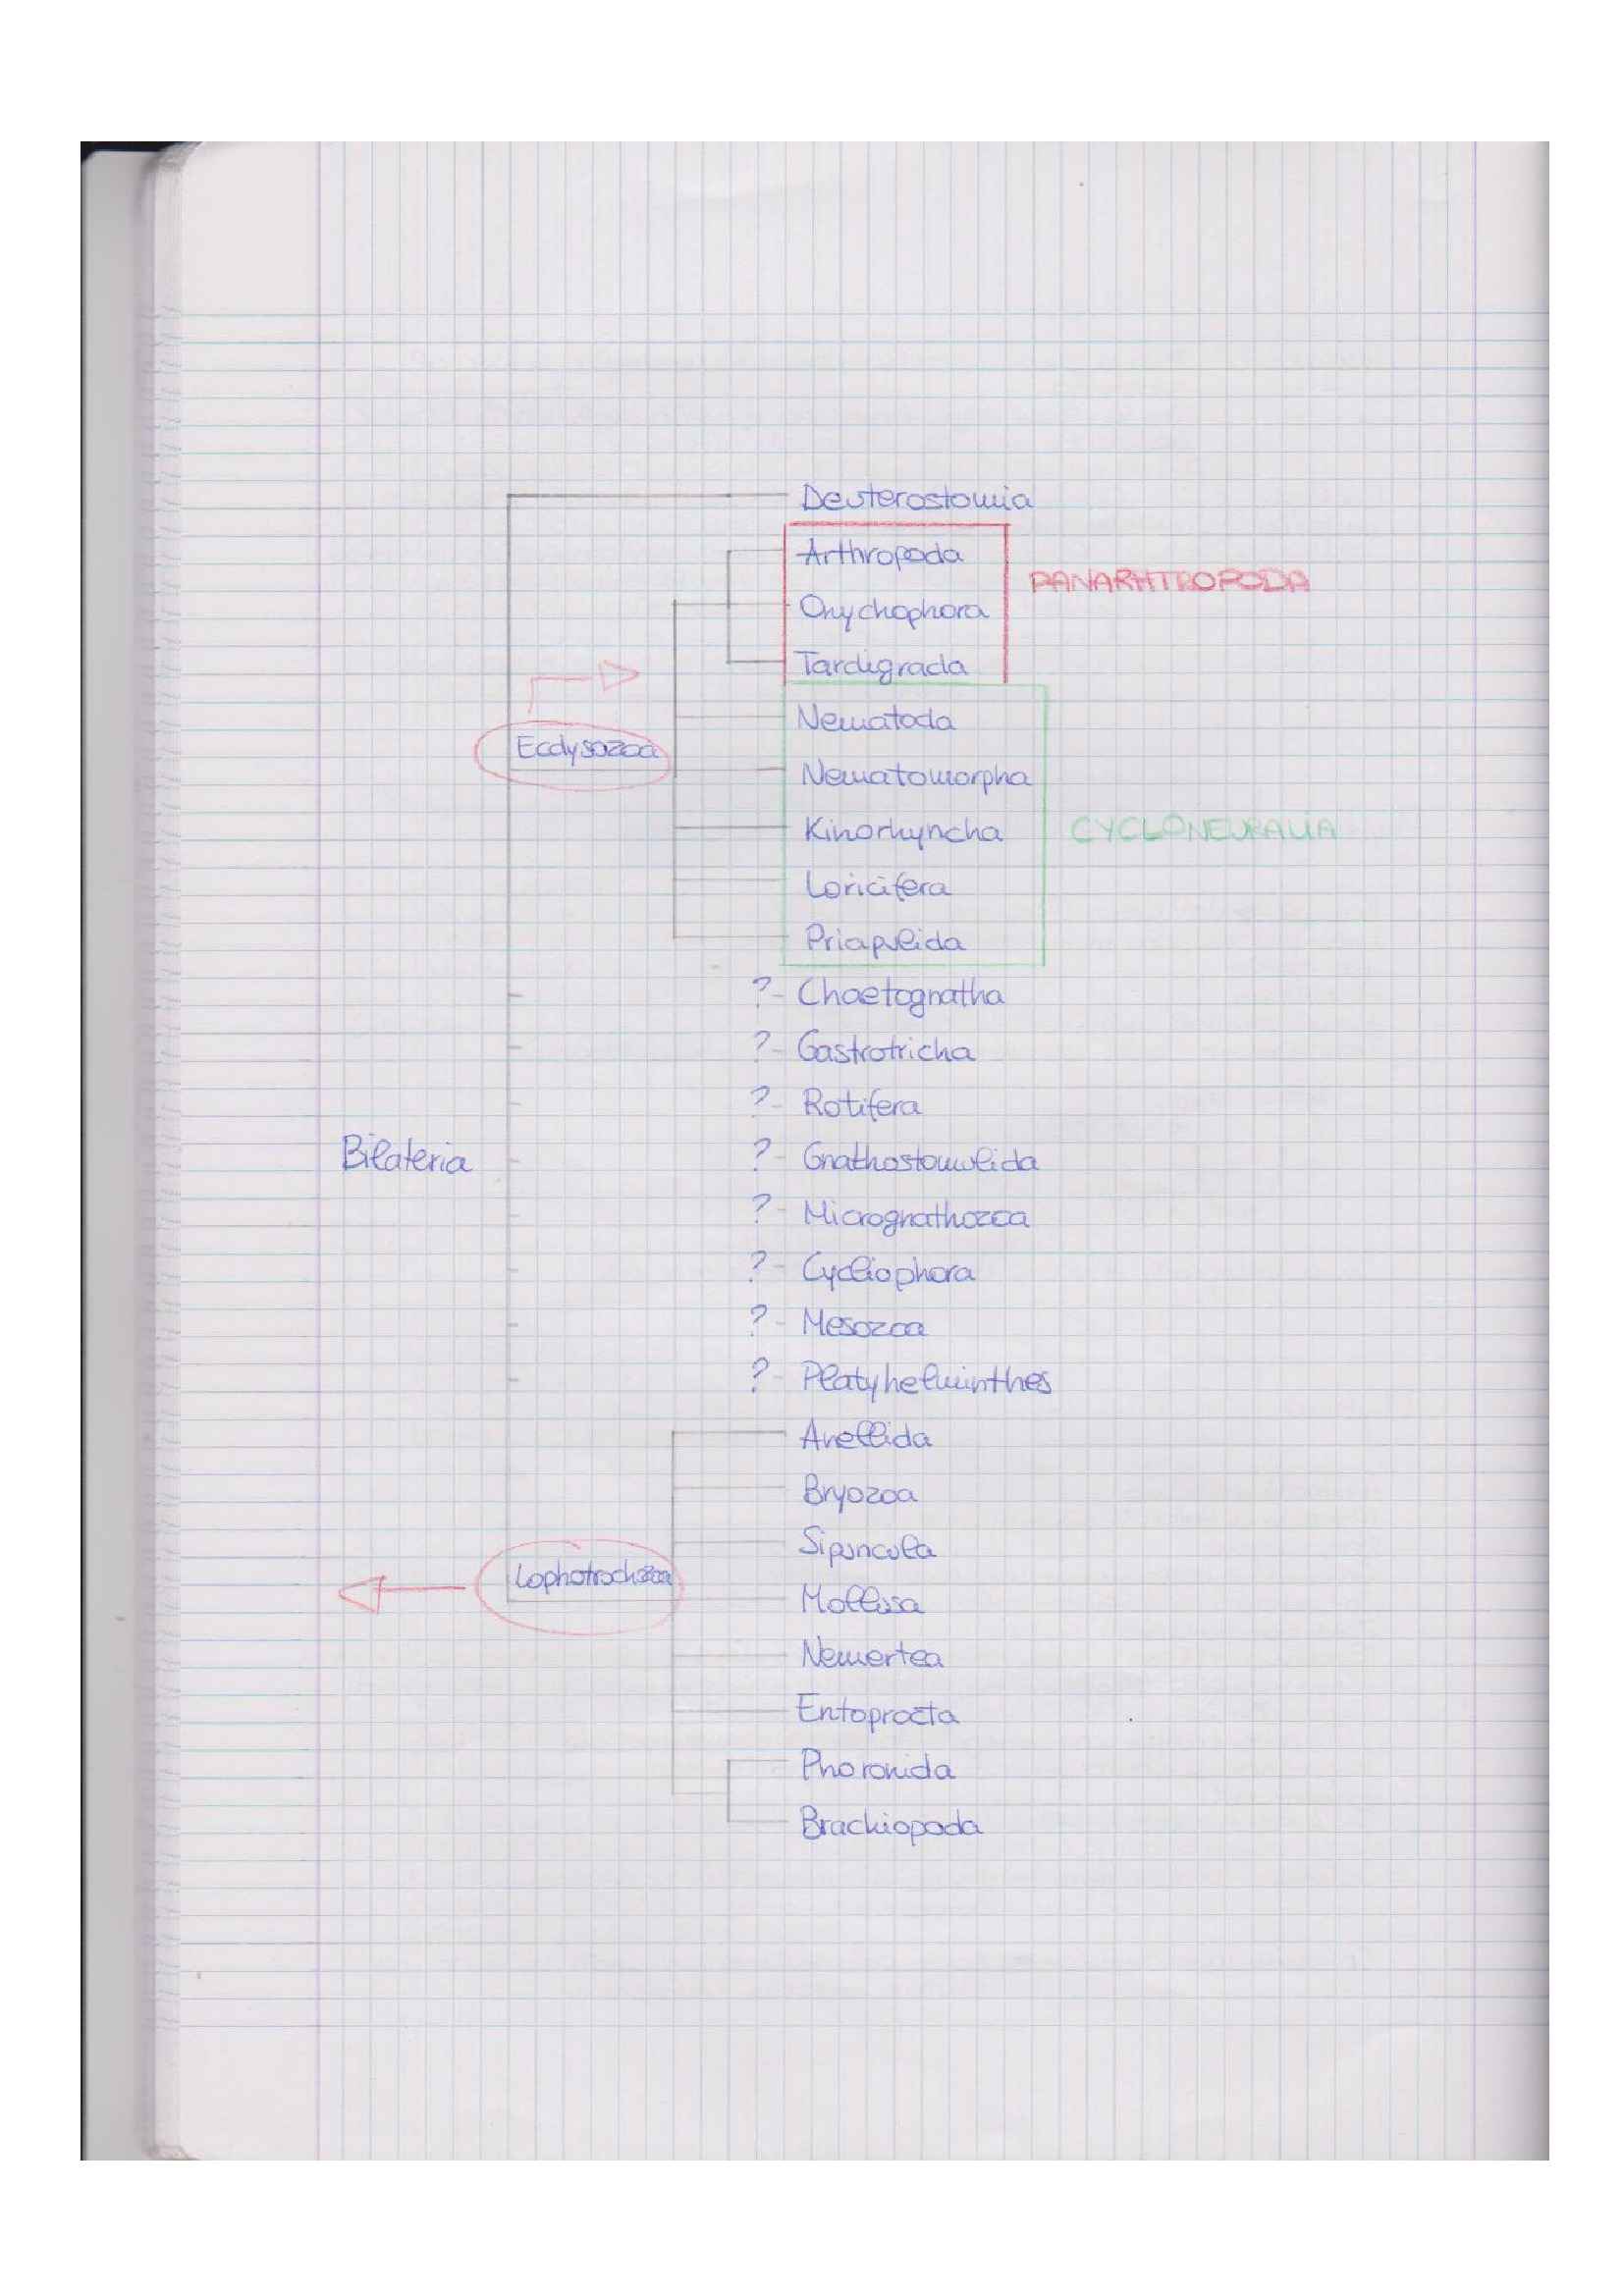 Deuterostomia
Arthropoda
PANARHTROPODA
Onychophora
Tardigrada
Nematoda
Ecdysozoa
Nematomorpha
Kinorhyncha
CYCLONEURALIA
Loricifera
Priapulida
?- Chaetognatha
?- Gastrotricha
?- Rotifera
Bilateria
?- Gnathostomulida
?- Micrognathozoa
?- Cycliophora
?- Mesozoa
?- Platyhelminthes
Anellida
Bryozoa
Sipuncula
Lophotrochozoa
Mollusca
Nemertea
Entoprocta
Phoronida
Brachiopoda